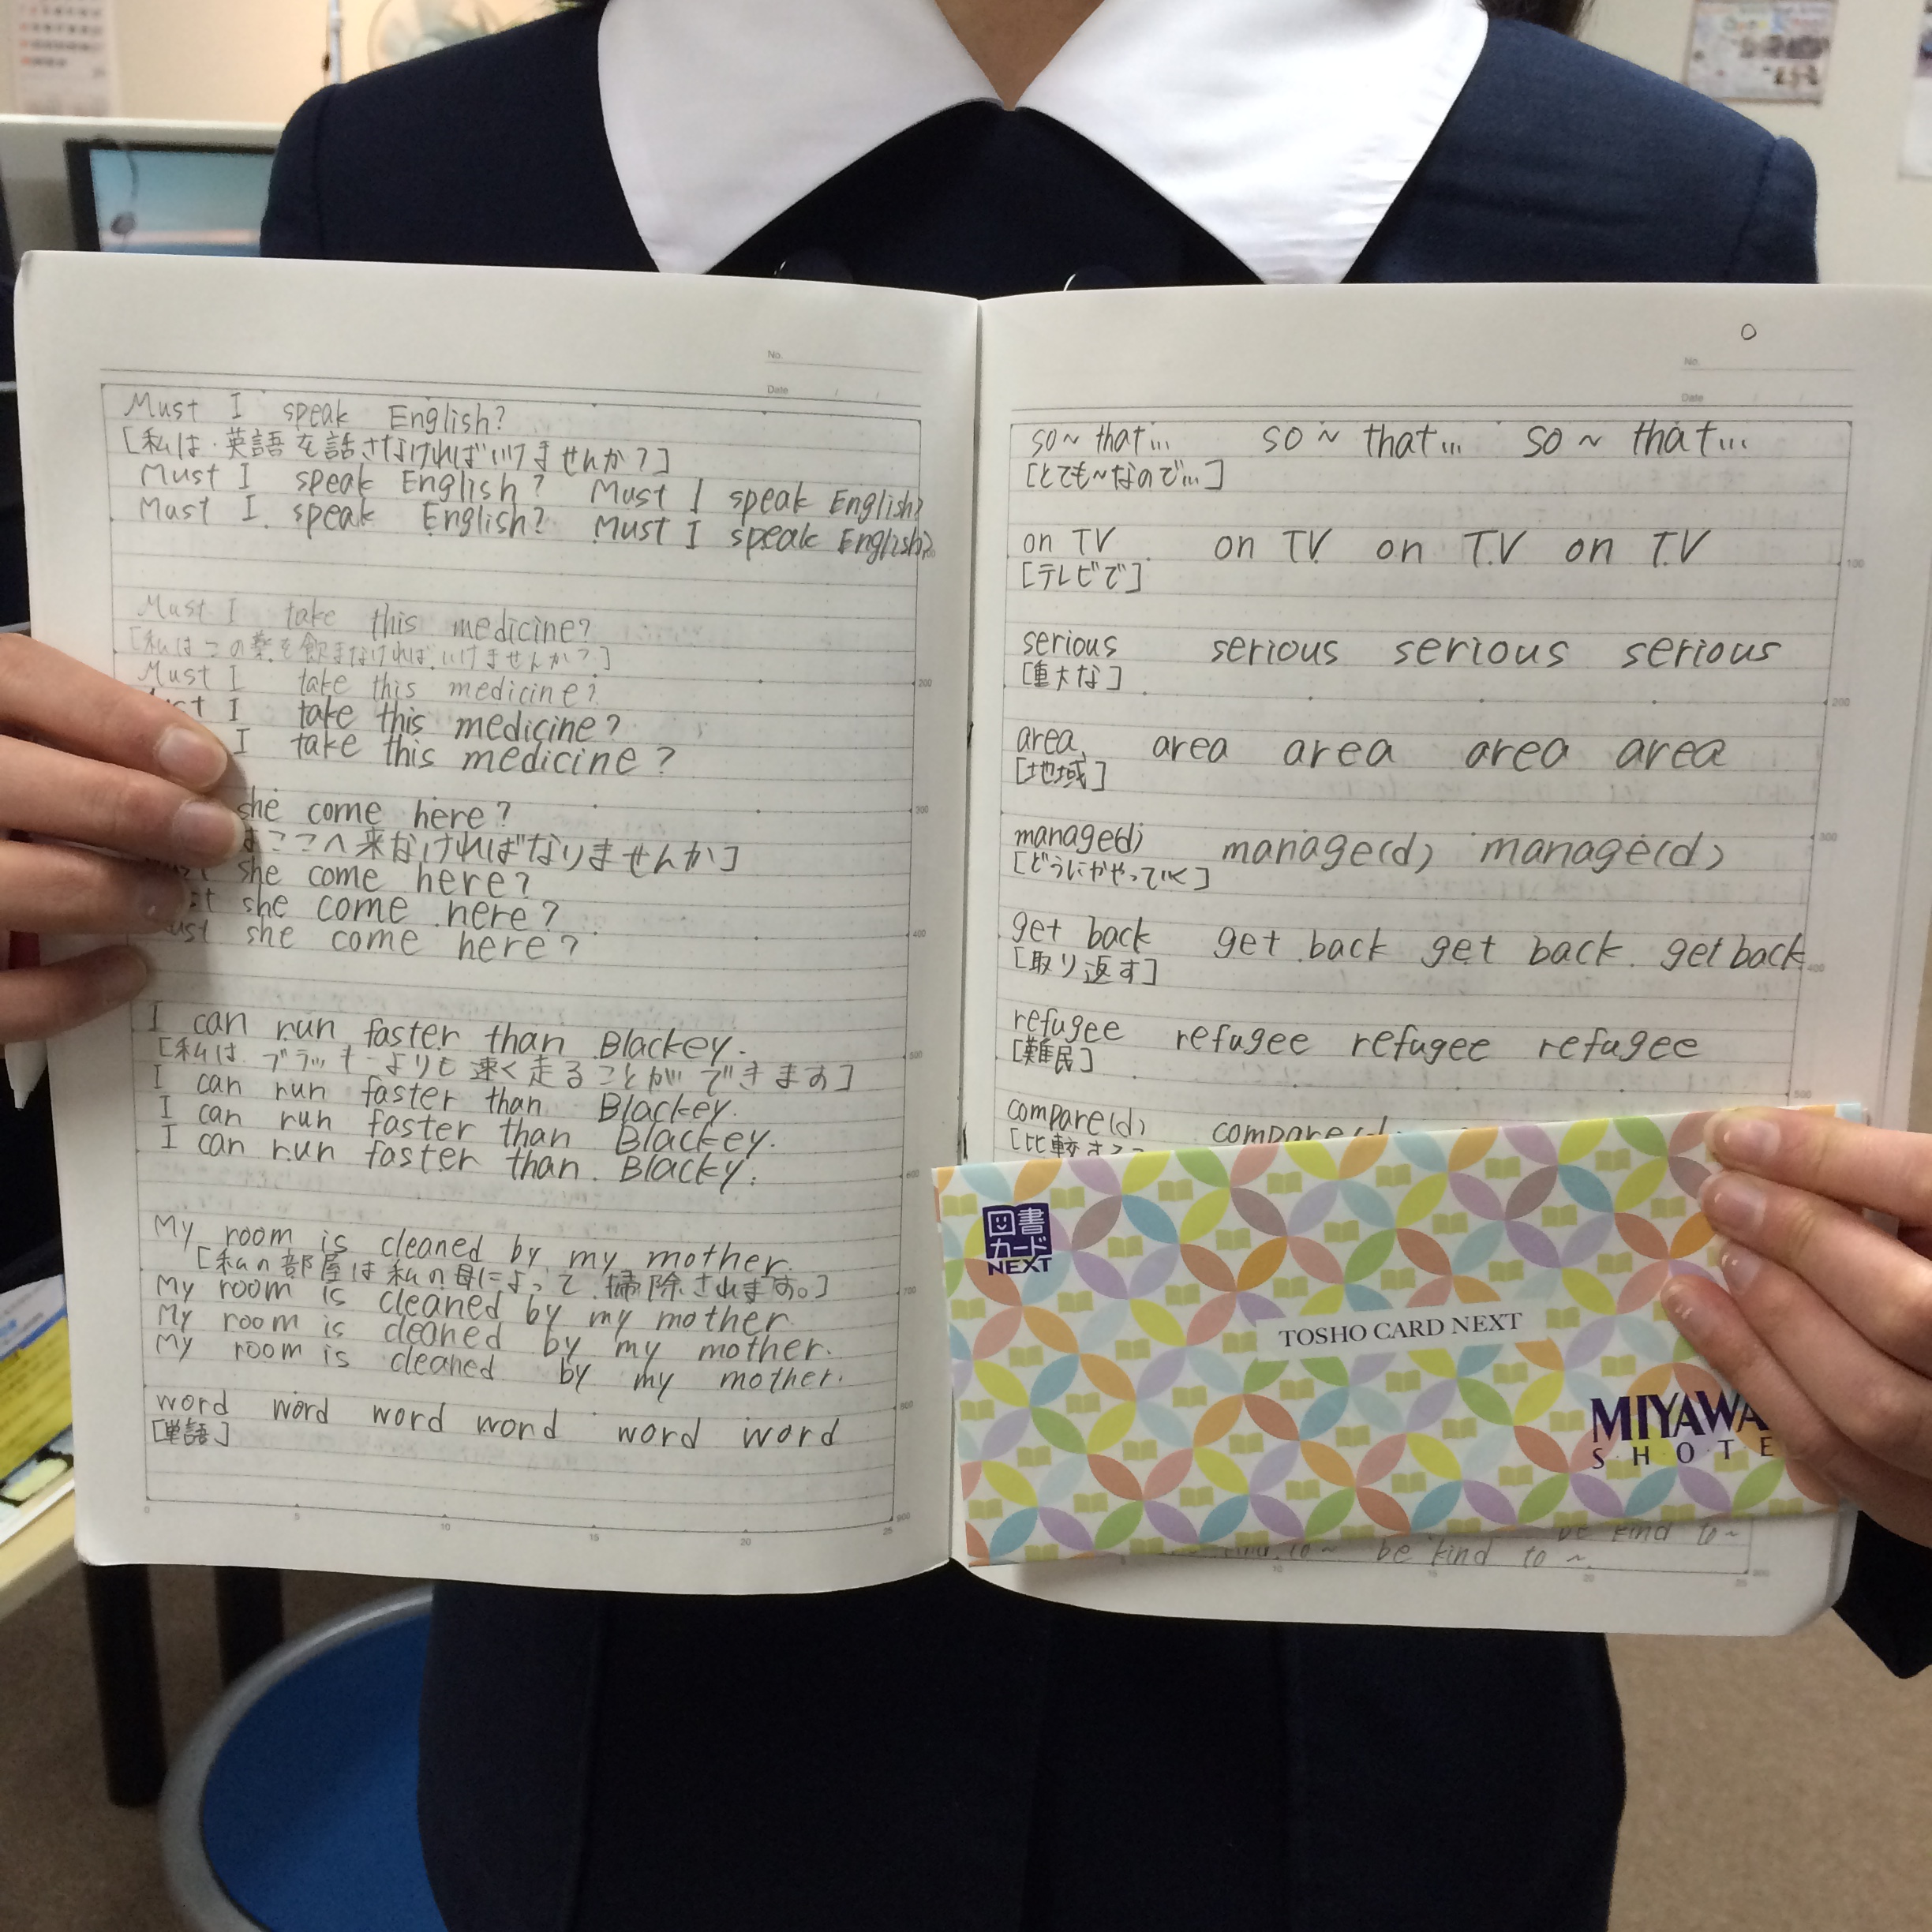 No.
Date
Must I speak English?
[私は英語を話さなければいけませんか?]
Must I speak English? Must I speak English?
Must I speak English? Must I speak English?
Must I take this medicine?
[私はこの薬を飲まなければいけませんか?]
Must I take this medicine?
I take this medicine?
I take this medicine?
she come here?
はここへ来なければなりませんか]
she come here?
she come here?
she come here?
I can run faster than Blackey.
[私はブラッキーよりも速く走ることができます]
I can run faster than Blackey.
I can run faster than Blackey.
I can run faster than Blacky.
My room is cleaned by my mother.
[私の部屋は私の母によって掃除されます。]
My room is cleaned by my mother.
My room is cleaned by my mother.
My room is cleaned by my mother.
word word word word word word
[単語]
0 5 10 15 20 25
No.
Date
so~ that... so ~ that... so ~ that...
[とても~なので...]
on TV on TV on TV on TV
[テレビで]
serious serious serious serious
[重大な]
area area area area area
[地域]
manage(d) manage(d) manage(d)
[どうにかやっていく]
get back get back get back get back
[取り返す]
refugee refugee refugee refugee
[難民]
compare(d) compare(d)
[比較する]
図書
カード
NEXT
TOSHO CARD NEXT
MIYAWA
SHOTE
be kind to~
be kind to ~